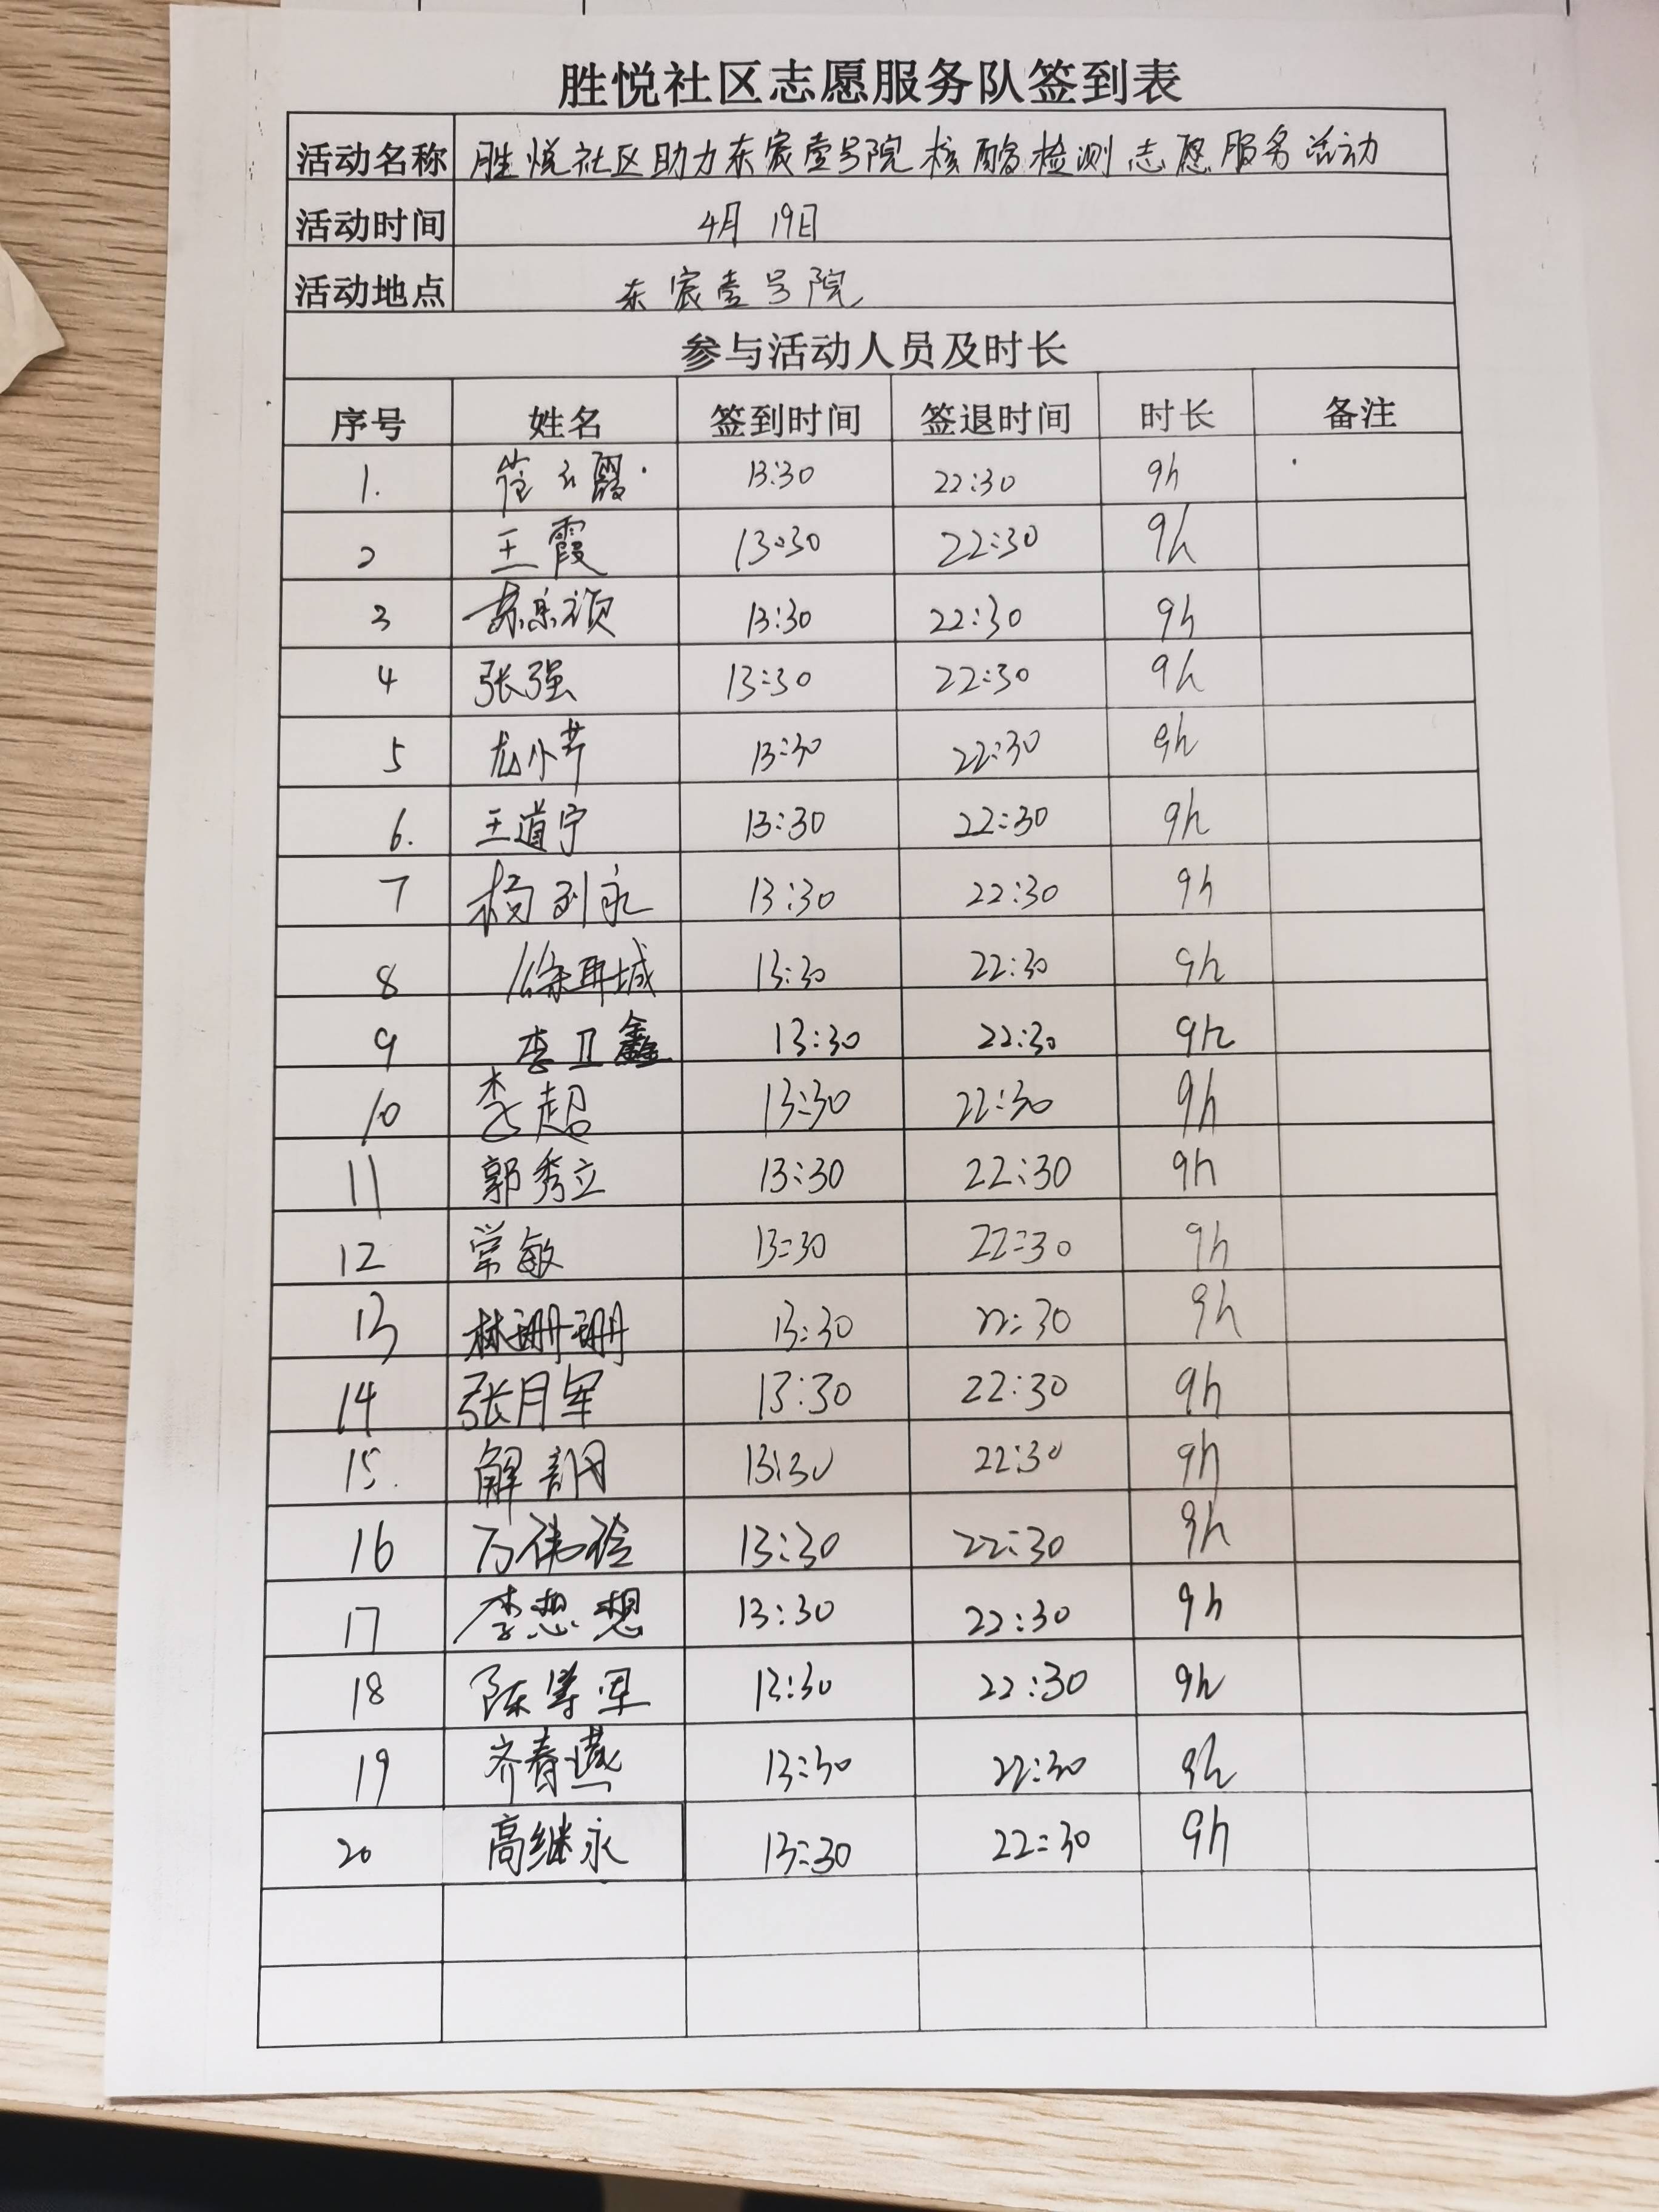 胜悦社区志愿服务队签到表
活动名称 胜悦社区助力东宸壹号院核酸检测志愿服务活动
活动时间 4月19日
活动地点 东宸壹号院
参与活动人员及时长
序号 姓名 签到时间 签退时间 时长 备注
1. 霞 13:30 22:30 9h
2 王霞 13:30 22:30 9h
3 13:30 22:30 9h
4 张强 13:30 22:30 9h
5 尤小芹 13:30 22:30 9h
6. 王道宁 13:30 22:30 9h
7 杨永 13:30 22:30 9h
8 徐城 13:30 22:30 9h
9 李卫鑫 13:30 22:30 9h
10 李超 13:30 22:30 9h
11 郭秀立 13:30 22:30 9h
12 常敏 13:30 22:30 9h
13 林珊珊 13:30 22:30 9h
14 张月军 13:30 22:30 9h
15. 解 13:30 22:30 9h
16 万伟 13:30 22:30 9h
17 李想想 13:30 22:30 9h
18 陈学军 13:30 22:30 9h
19 齐春燕 13:30 22:30 9h
20 高继永 13:30 22:30 9h